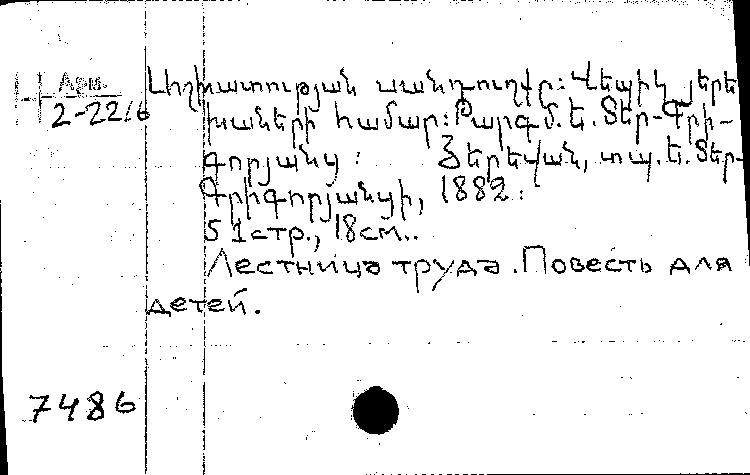 Арм.
2-2216
Աշխատության սանդուղքը: Վեպիկ յերե
խաների համար: Թարգմ. Ե. Տեր-Գրի-
գորյանց: Յերեվան, տպ. Ե. Տեր-
Գրիգորյանցի, 1882:
51стр., 18см..
Лестница труда. Повесть для
детей.
7486